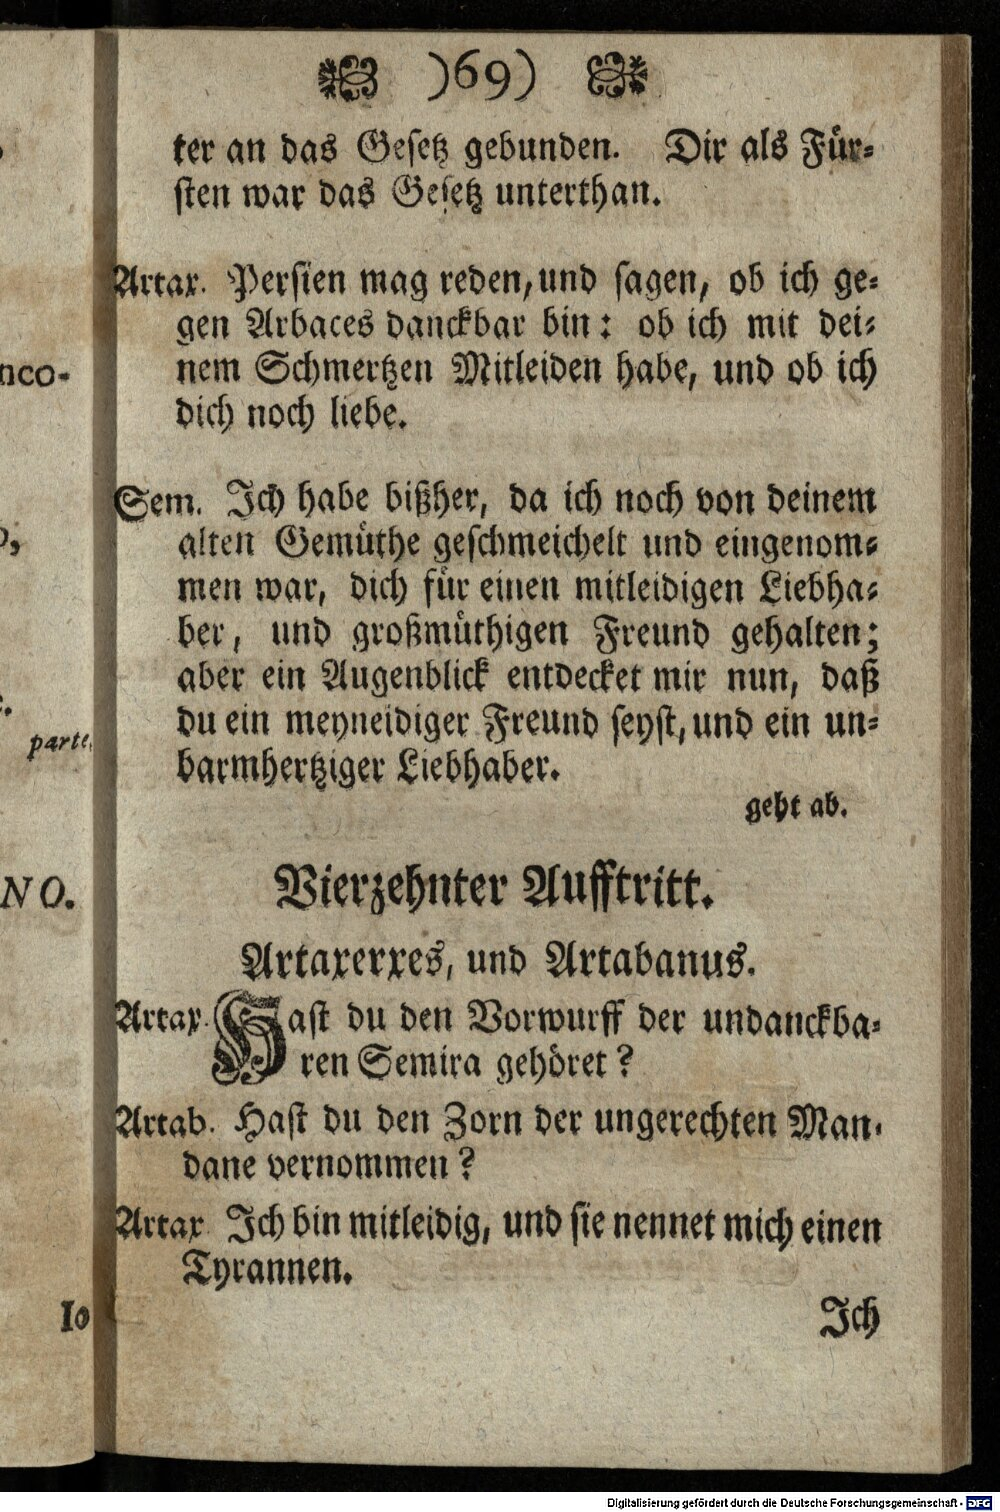 )69)
ter an das Gesetz gebunden. Dir als Für-
sten war das Gesetz unterthan.
Artax. Persien mag reden, und sagen, ob ich ge-
gen Arbaces danckbar bin: ob ich mit dei-
nem Schmertzen Mitleiden habe, und ob ich
dich noch liebe.
Sem. Ich habe bißher, da ich noch von deinem
alten Gemüthe geschmeichelt und eingenom-
men war, dich für einen mitleidigen Liebha-
ber, und großmüthigen Freund gehalten;
aber ein Augenblick entdecket mir nun, daß
du ein meyneidiger Freund seyst, und ein un-
barmhertziger Liebhaber.
geht ab.
Vierzehnter Aufftritt.
Artaxerxes, und Artabanus.
Artax. Hast du den Vorwurff der undanckba-
ren Semira gehöret?
Artab. Hast du den Zorn der ungerechten Man-
dane vernommen?
Artax. Ich bin mitleidig, und sie nennet mich einen
Tyrannen.
Ich
nco-
parte.
NO.
Io
Digitalisierung gefördert durch die Deutsche Forschungsgemeinschaft - DFG